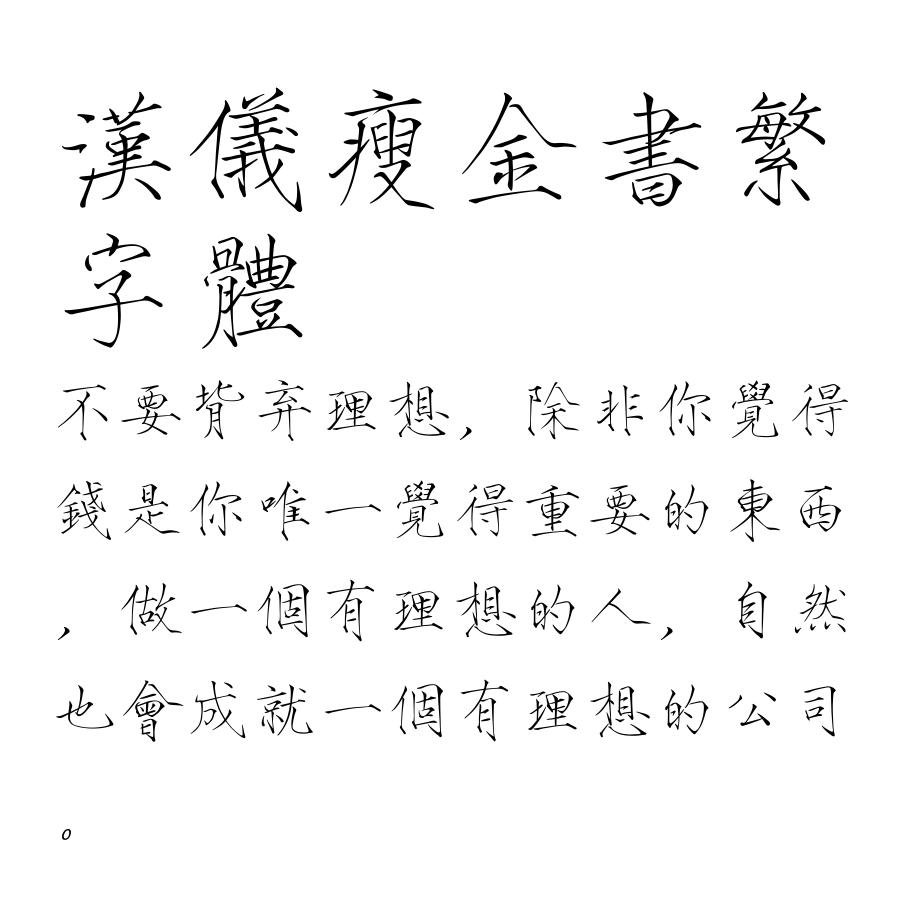 漢儀瘦金書繁
字體
不要背弃理想，除非你覺得
錢是你唯一覺得重要的東西
，做一個有理想的人，自然
也會成就一個有理想的公司
0